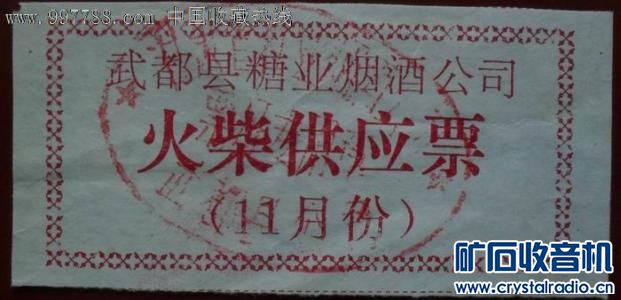 www.997788.com 中国收藏热线
武都县糖业烟酒公司
火柴供应票
(11月份)
矿石收音机
www.crystalradio.cn